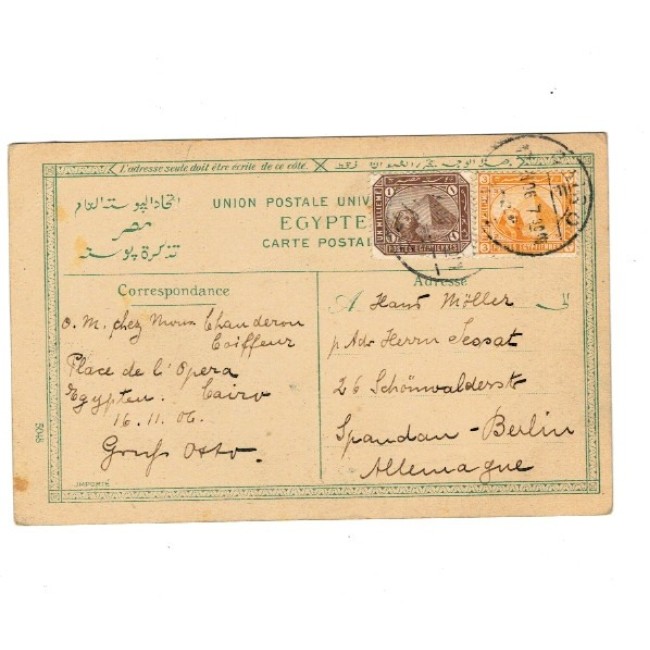 L'adresse seule doit être écrite de ce côté.
اتحاد البوستة العام
مصر
تذكرة بوستة
UNION POSTALE UNIV
EGYPTE
CARTE POSTAL
1 1
3
3 3
CAIRO
06 7
Correspondance
Adresse
o. M. chez Moun Chanderon
Coiffeur
Place de l'Opera
Egypten. Cairo
16.11.06.
Gruß Otto.
A Hans Möller
p. Adr Herrn Jessat
26 Schönwalderstr
Spandau-Berlin
Allemagne
5048
IMPORTÉ